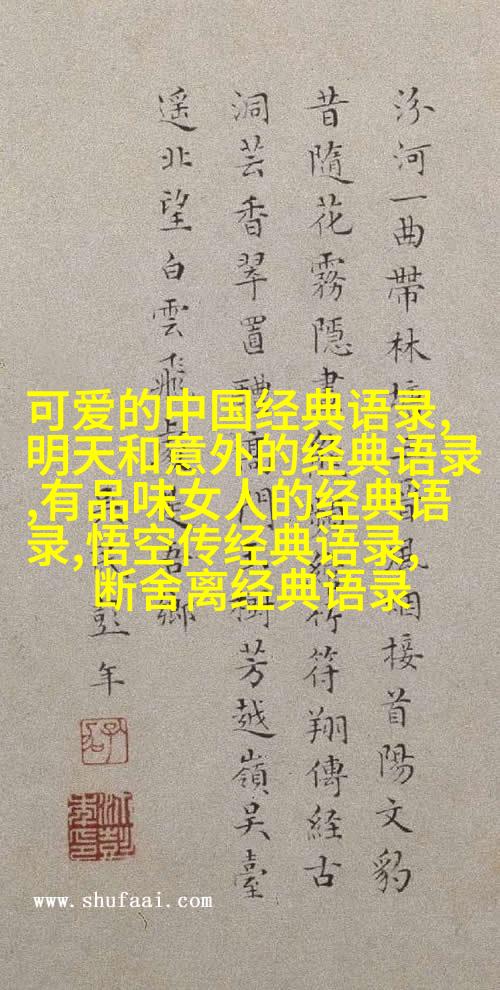 可爱的中国经典语录,
明天和意外的经典语录
,有品味女人的经典语
录,悟空传经典语录,
断舍离经典语录
汾河一曲帶林接首陽文豹
昔隨花霧隱符翔傳經古
洞芸香翠置門芳越嶺吴臺
遥北望白雲飛處是吾鄉
彭年
www.shufaai.com